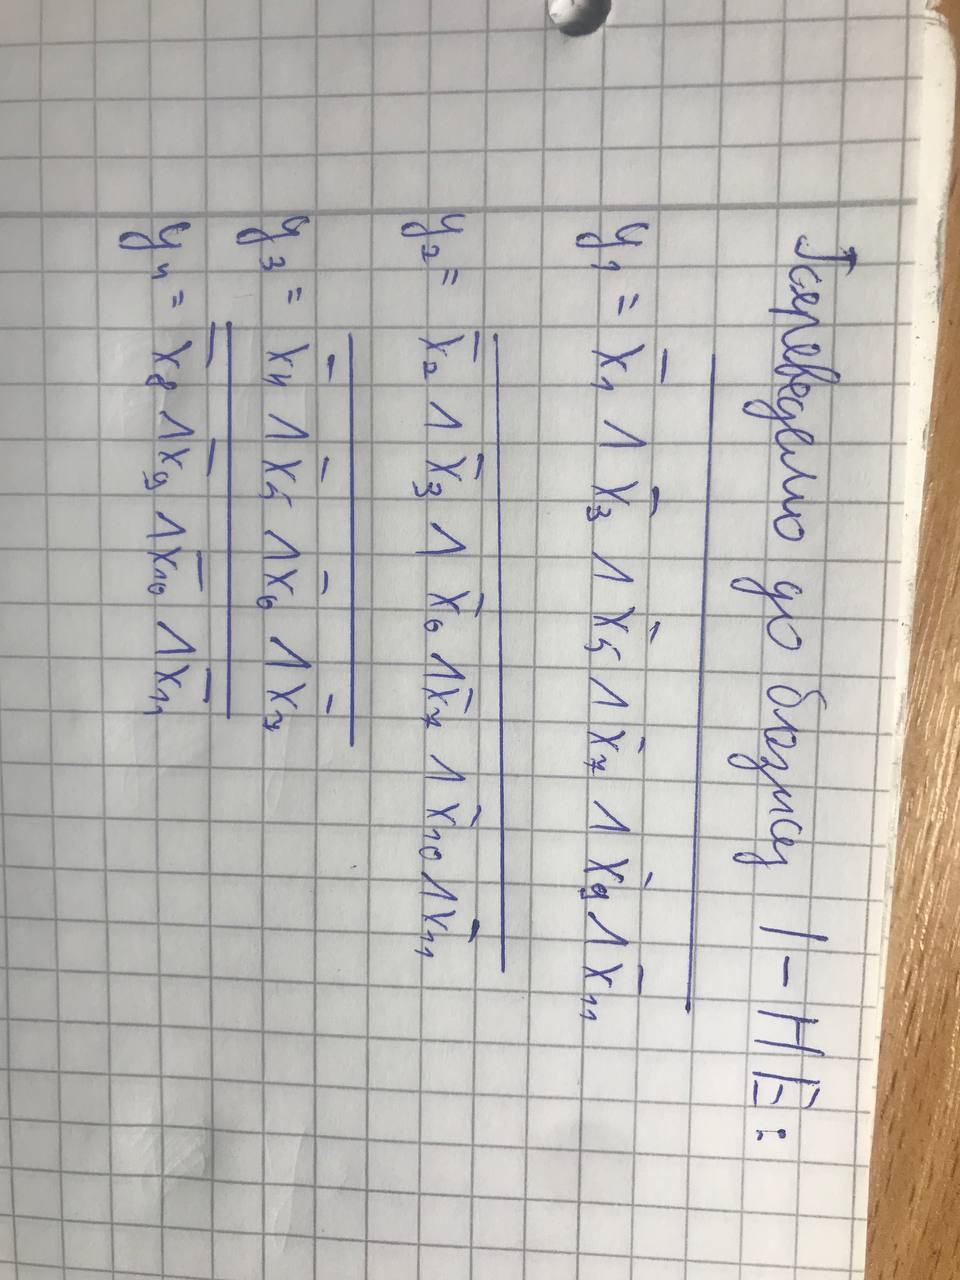 Переведемо до базису І-НЕ:
y₁ = x̅₁ ∧ x̅₃ ∧ x̅₅ ∧ x̅₇ ∧ x̅₉ ∧ x̅₁₁
y₂ = x̅₂ ∧ x̅₃ ∧ x̅₆ ∧ x̅₇ ∧ x̅₁₀ ∧ x̅₁₁
y₃ = x̅₄ ∧ x̅₅ ∧ x̅₆ ∧ x̅₇
y₄ = x̅₈ ∧ x̅₉ ∧ x̅₁₀ ∧ x̅₁₁